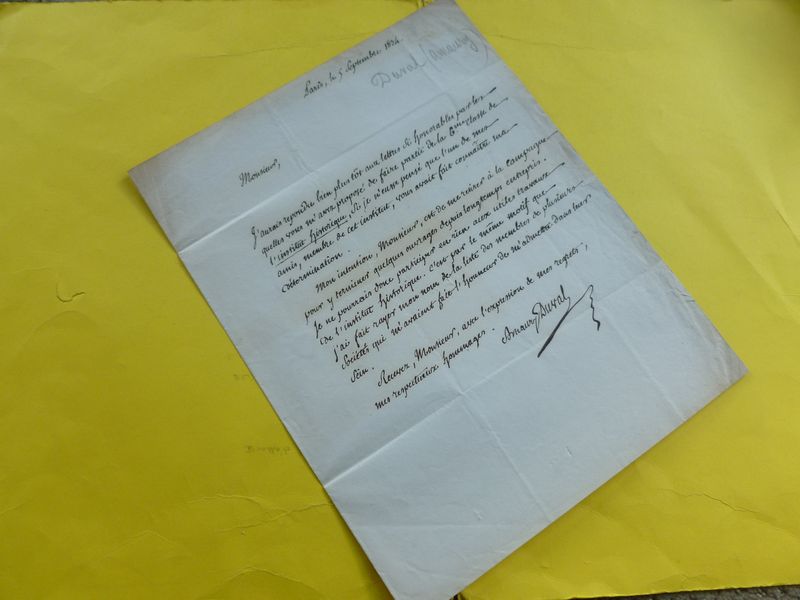 Paris, le 5 Septembre 1834.
Duval (Amaury)
Monsieur,
J'aurais repondu bien plustôt aux lettres si honorables par les-
quelles vous m'avez proposé de faire partie de la 6me classe de
l'institut historique, si je n'eusse pensé que l'un de mes
amis, membre de cet institut, vous avait fait connaître ma
détermination.
Mon intention, Monsieur, est de me retirer à la campagne
pour y terminer quelques ouvrages depuis longtemps entrepris.
Je ne pourrais donc participer en rien aux utiles travaux
de l'institut historique. C'est par le même motif que
j'ai fait rayer mon nom de la liste des membres de plusieurs
Sociétés qui m'avaient fait l'honneur de m'admettre dans leur
sein.
Recevez, Monsieur, avec l'expression de mes regrets,
mes respectueux hommages.
Amaury Duval